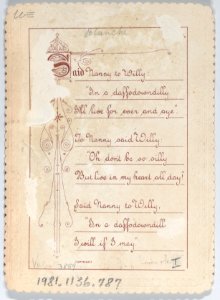 Blanche
Said Nanny to Willy
"In a daffodowndilly
I'll live for ever and aye"
To Nanny said Willy:
"Oh don't be so silly
But live in my heart all day!"
Said Nanny to Willy,
"In a daffodowndill
I will if I may.
1981.1136.787